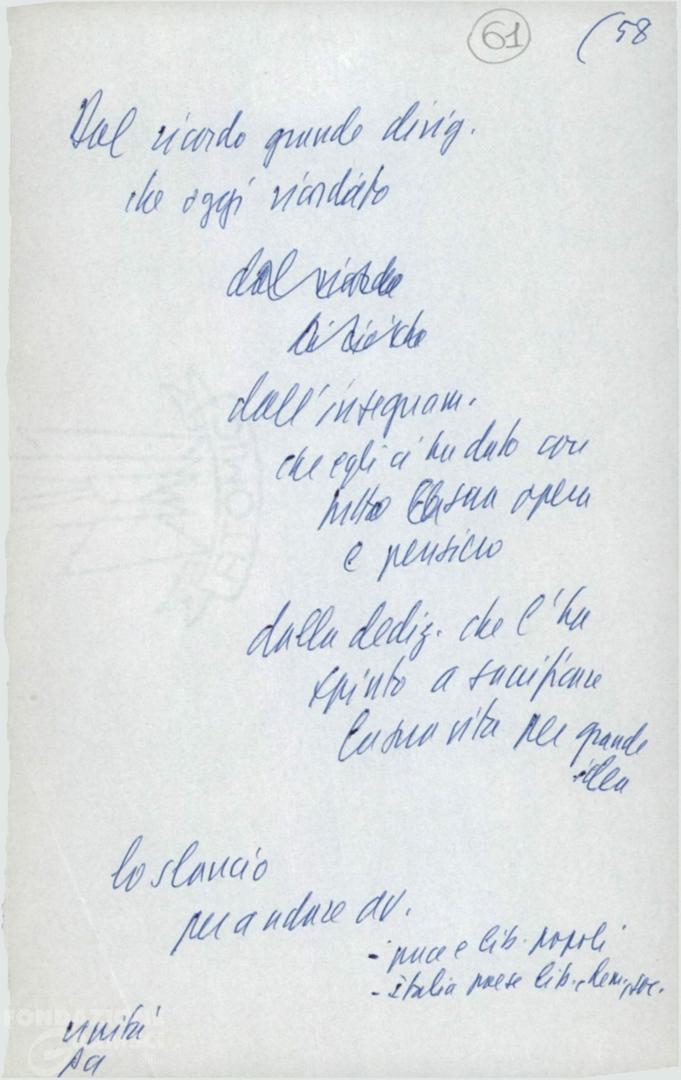 61 (58
Dal ricordo grande dirig.
che oggi ricordato
dal ricordo
dall'insegnam.
che egli ci ha dato con
tutta la sua opera
e pensiero
dalla dediz. che l'ha
spinto a sacrificare
la sua vita per grande
idea
lo slancio
per andare av.
- pace e lib. popoli
- italia paese lib. dem. soc.
unità
FONDAZIONE